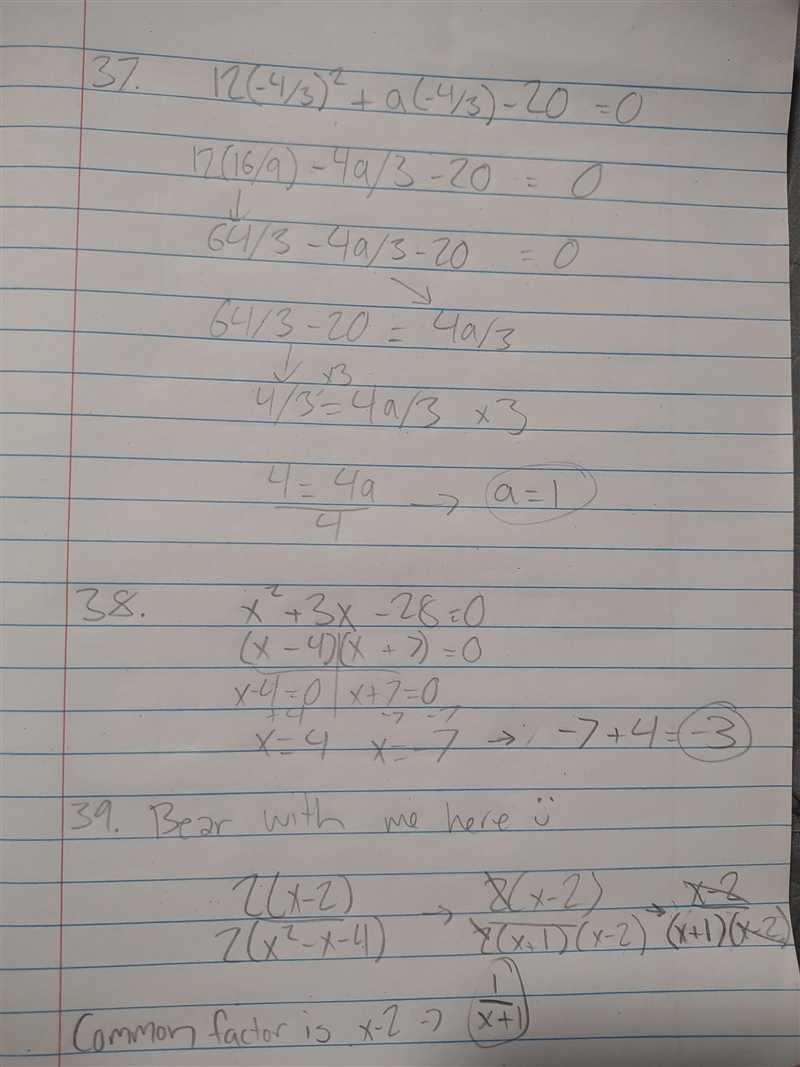 37. 12(-4/3)² + a(-4/3) - 20 = 0
12(16/9) - 4a/3 - 20 = 0
↓
64/3 - 4a/3 - 20 = 0
↘
64/3 - 20 = 4a/3
↓ x3
4/3 = 4a/3 x 3
4 = 4a
4
→ a = 1
38. x² + 3x - 28 = 0
(x - 4)(x + 7) = 0
x-4=0 | x+7=0
+4 -7 -7
x=4 x=-7 → -7+4=-3
39. Bear with me here ü
2(x-2) → 2(x-2) → x-2
2(x²-x-4) 2(x+1)(x-2) (x+1)(x-2)
Common factor is x-2 → 1
x+1